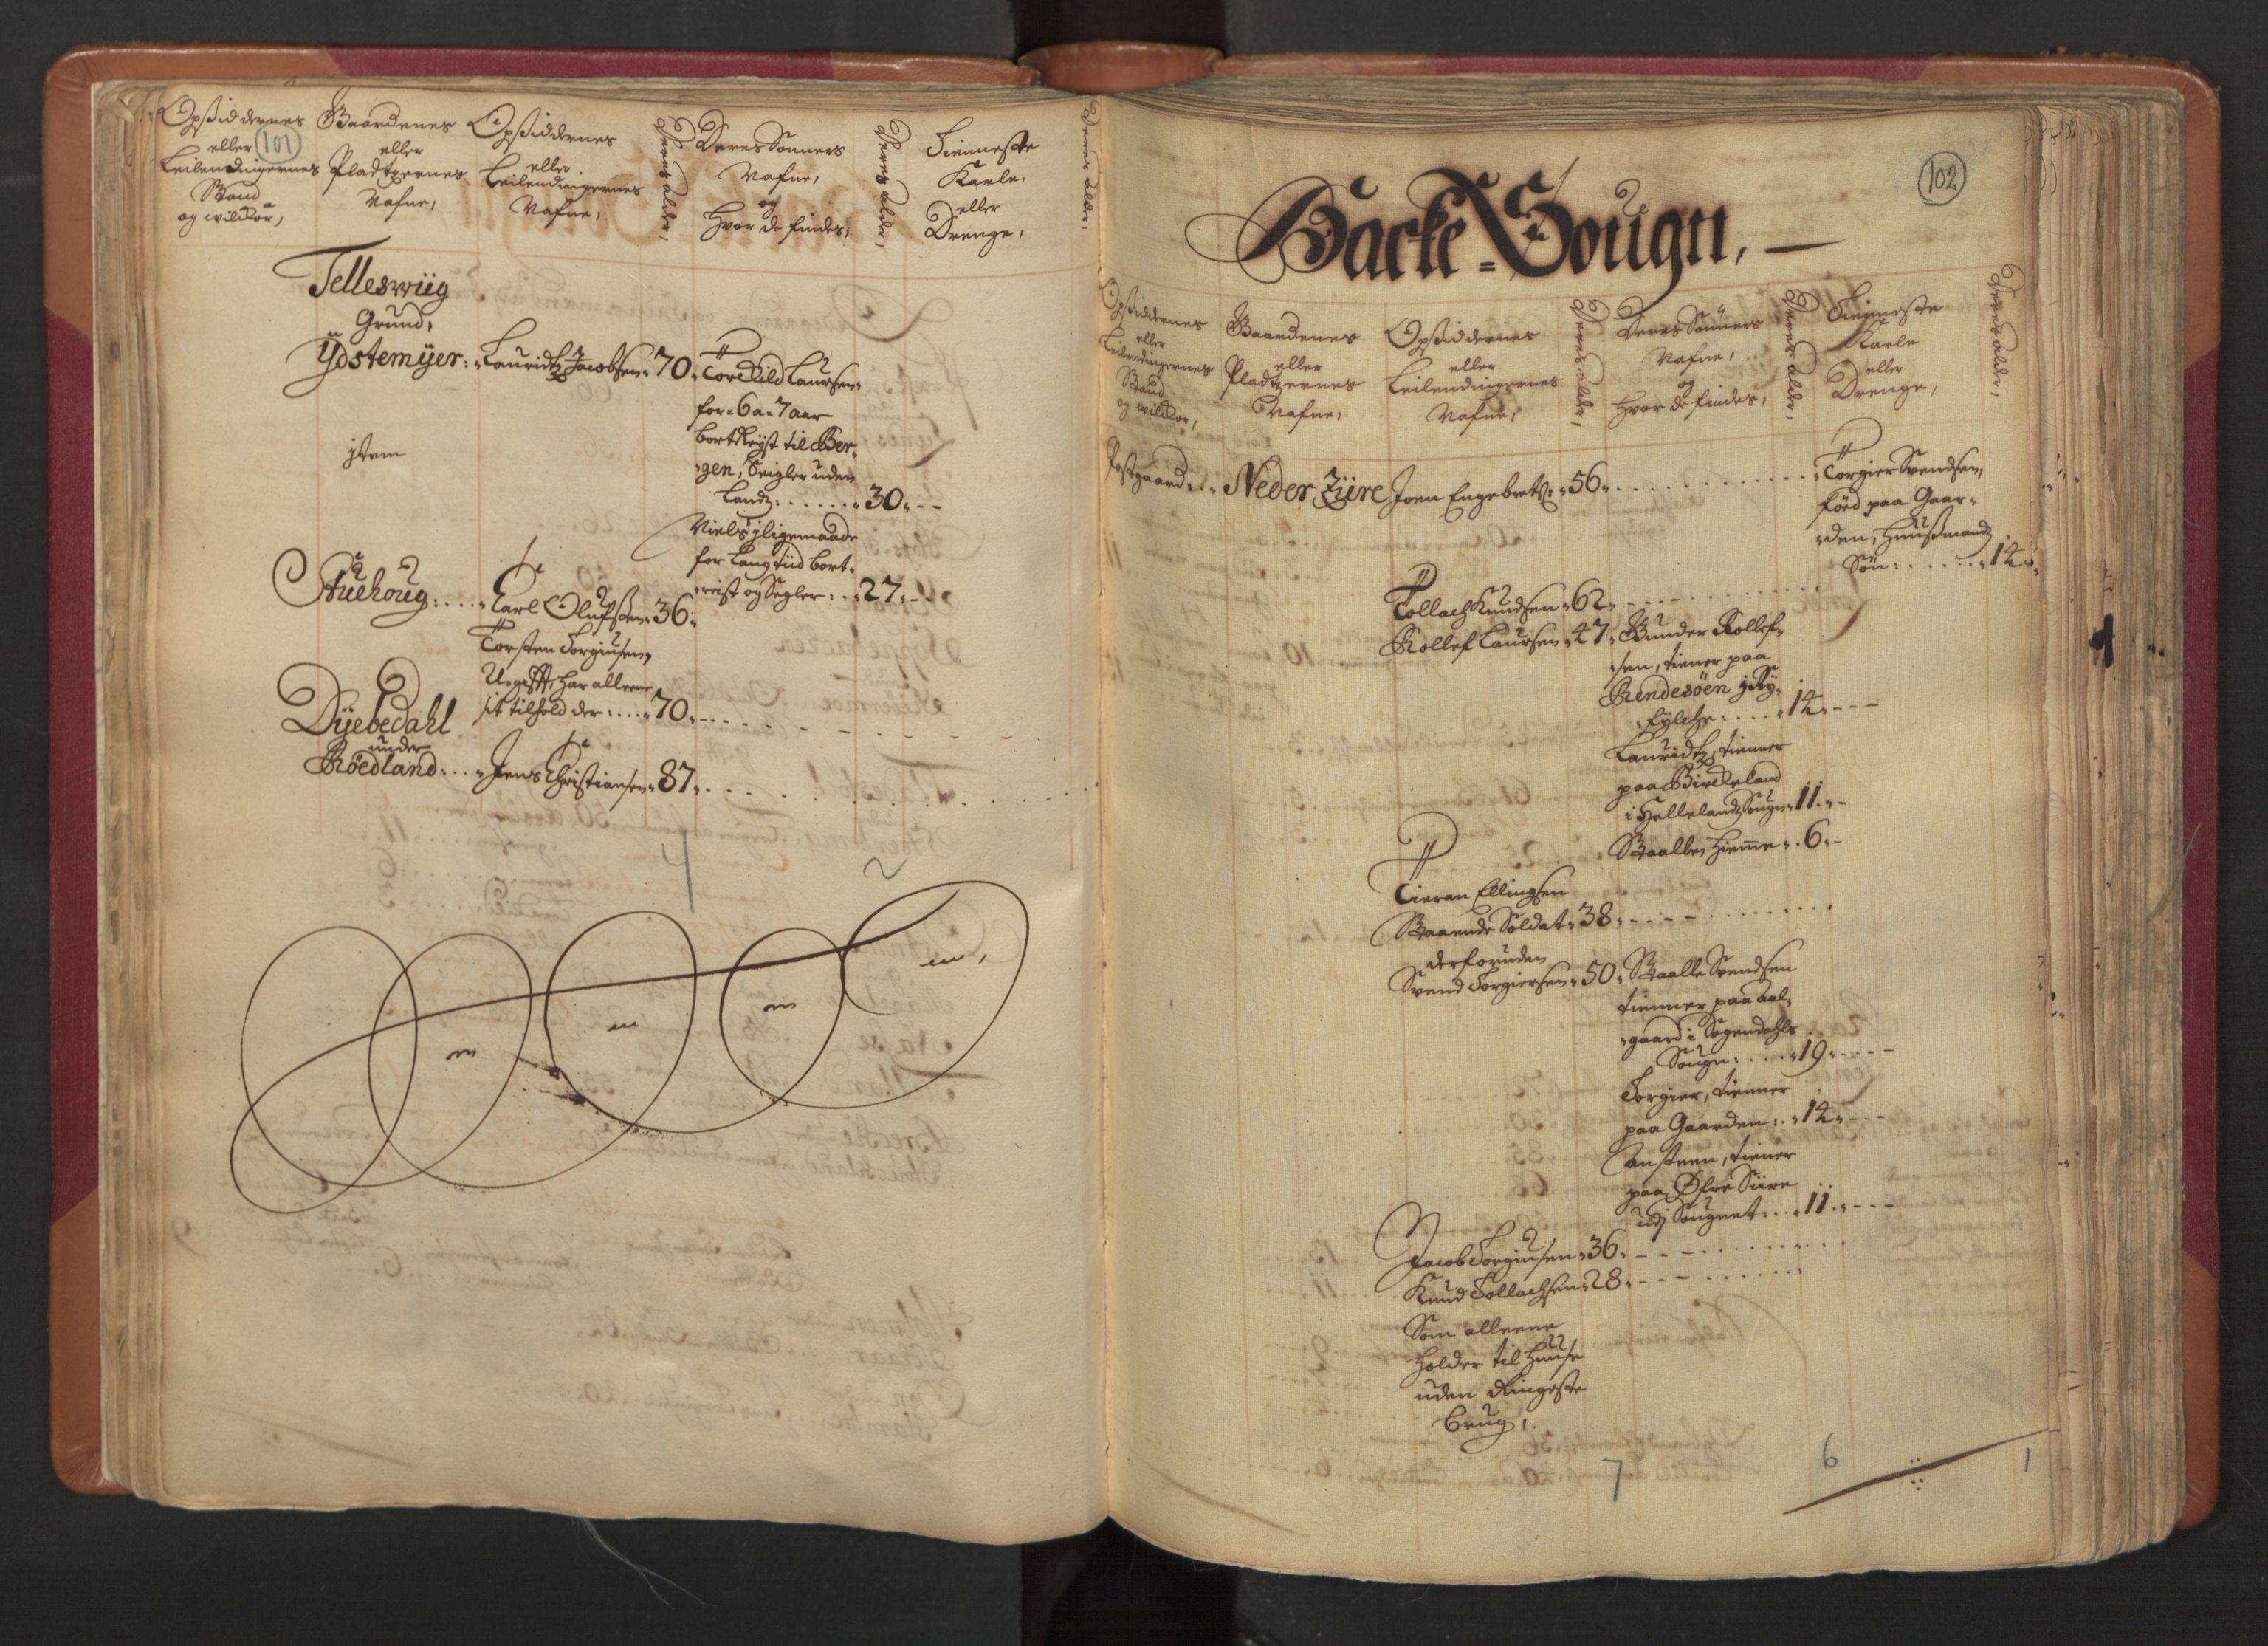 101
Opsiddernes
eller
Leilendingernes
Stand
og vilckor,
Gaardenes
eller
Pladtzernes
Nafne,
Opsiddernes
eller
Leilendingernes
Nafne,
Deres alder,
Deres Sønners
Nafne,
og
Hvor de findes,
Deres alder,
Tienneste
Karle,
eller
Drenge,
Deres alder,
Jelleswiig
Grund,
Ÿdstemÿer: Lauridtz Jacobsen 70.
Torckild Laursen
for 6 a 7 aar
bortReyst til Ber-
gen, Seigler uden
Landz: . . . . . 30.
jtem
Niels jligemaade
for lang tiid bort-
reist og Segler: . . 27.
Stuehoug: . . . Carl Olufsen 36.
Torsten Torgiusen,
Ugift, har alleene
sit tilhold der: . . . 70.
Dÿebedahl
under
Röedland: . . . Jens Christiansen 87.
4 2
m m m m,
102
Backe-Sougn,
Opsiddernes
eller
Leilendingernes
Stand
og vilckor,
Gaardenes
eller
Pladtzernes
Nafne,
Opsiddernes
eller
Leilendingernes
Nafne,
Deres alder,
Deres Sønners
Nafne,
og
Hvor de findes,
Deres alder,
Tienneste
Karle
eller
Drenge,
Deres alder,
Postgaard: . . Neder Ziire Joen Engebretz: 56.
Torgier Svendsen,
föed paa Gaar-
den, Huusmandz
Sön: . . . . . 14.
Tollach Knudsen 62.
Rollef Laursen 47. Gunder Rollef-
sen, tiener paa
Rendesöen j Ry-
fylche: . . . . 14.
Lauridtz, tienner
paa Birckeland
i Hellelandz Sougn 11.
Staalle, hiemme . 6.
Tieran Ellingsen
Staaende Soldat 38.
derforuden
Svend Torgiersen 50. Staalle Svendsen
tienner paa Aal-
gaard i Sogendahls
Sougn: . . . 19.
Torgier, tienner
paa Gaarden: . . 14.
Ansteen, tiener
paa Øfre Siire
udj Sougnet: . . . 11.
Jacob Torgiusen 36.
Knud Tollachsen 28.
Som alleene
holder til Huuse
uden Ringeste
brug,
7 6 1